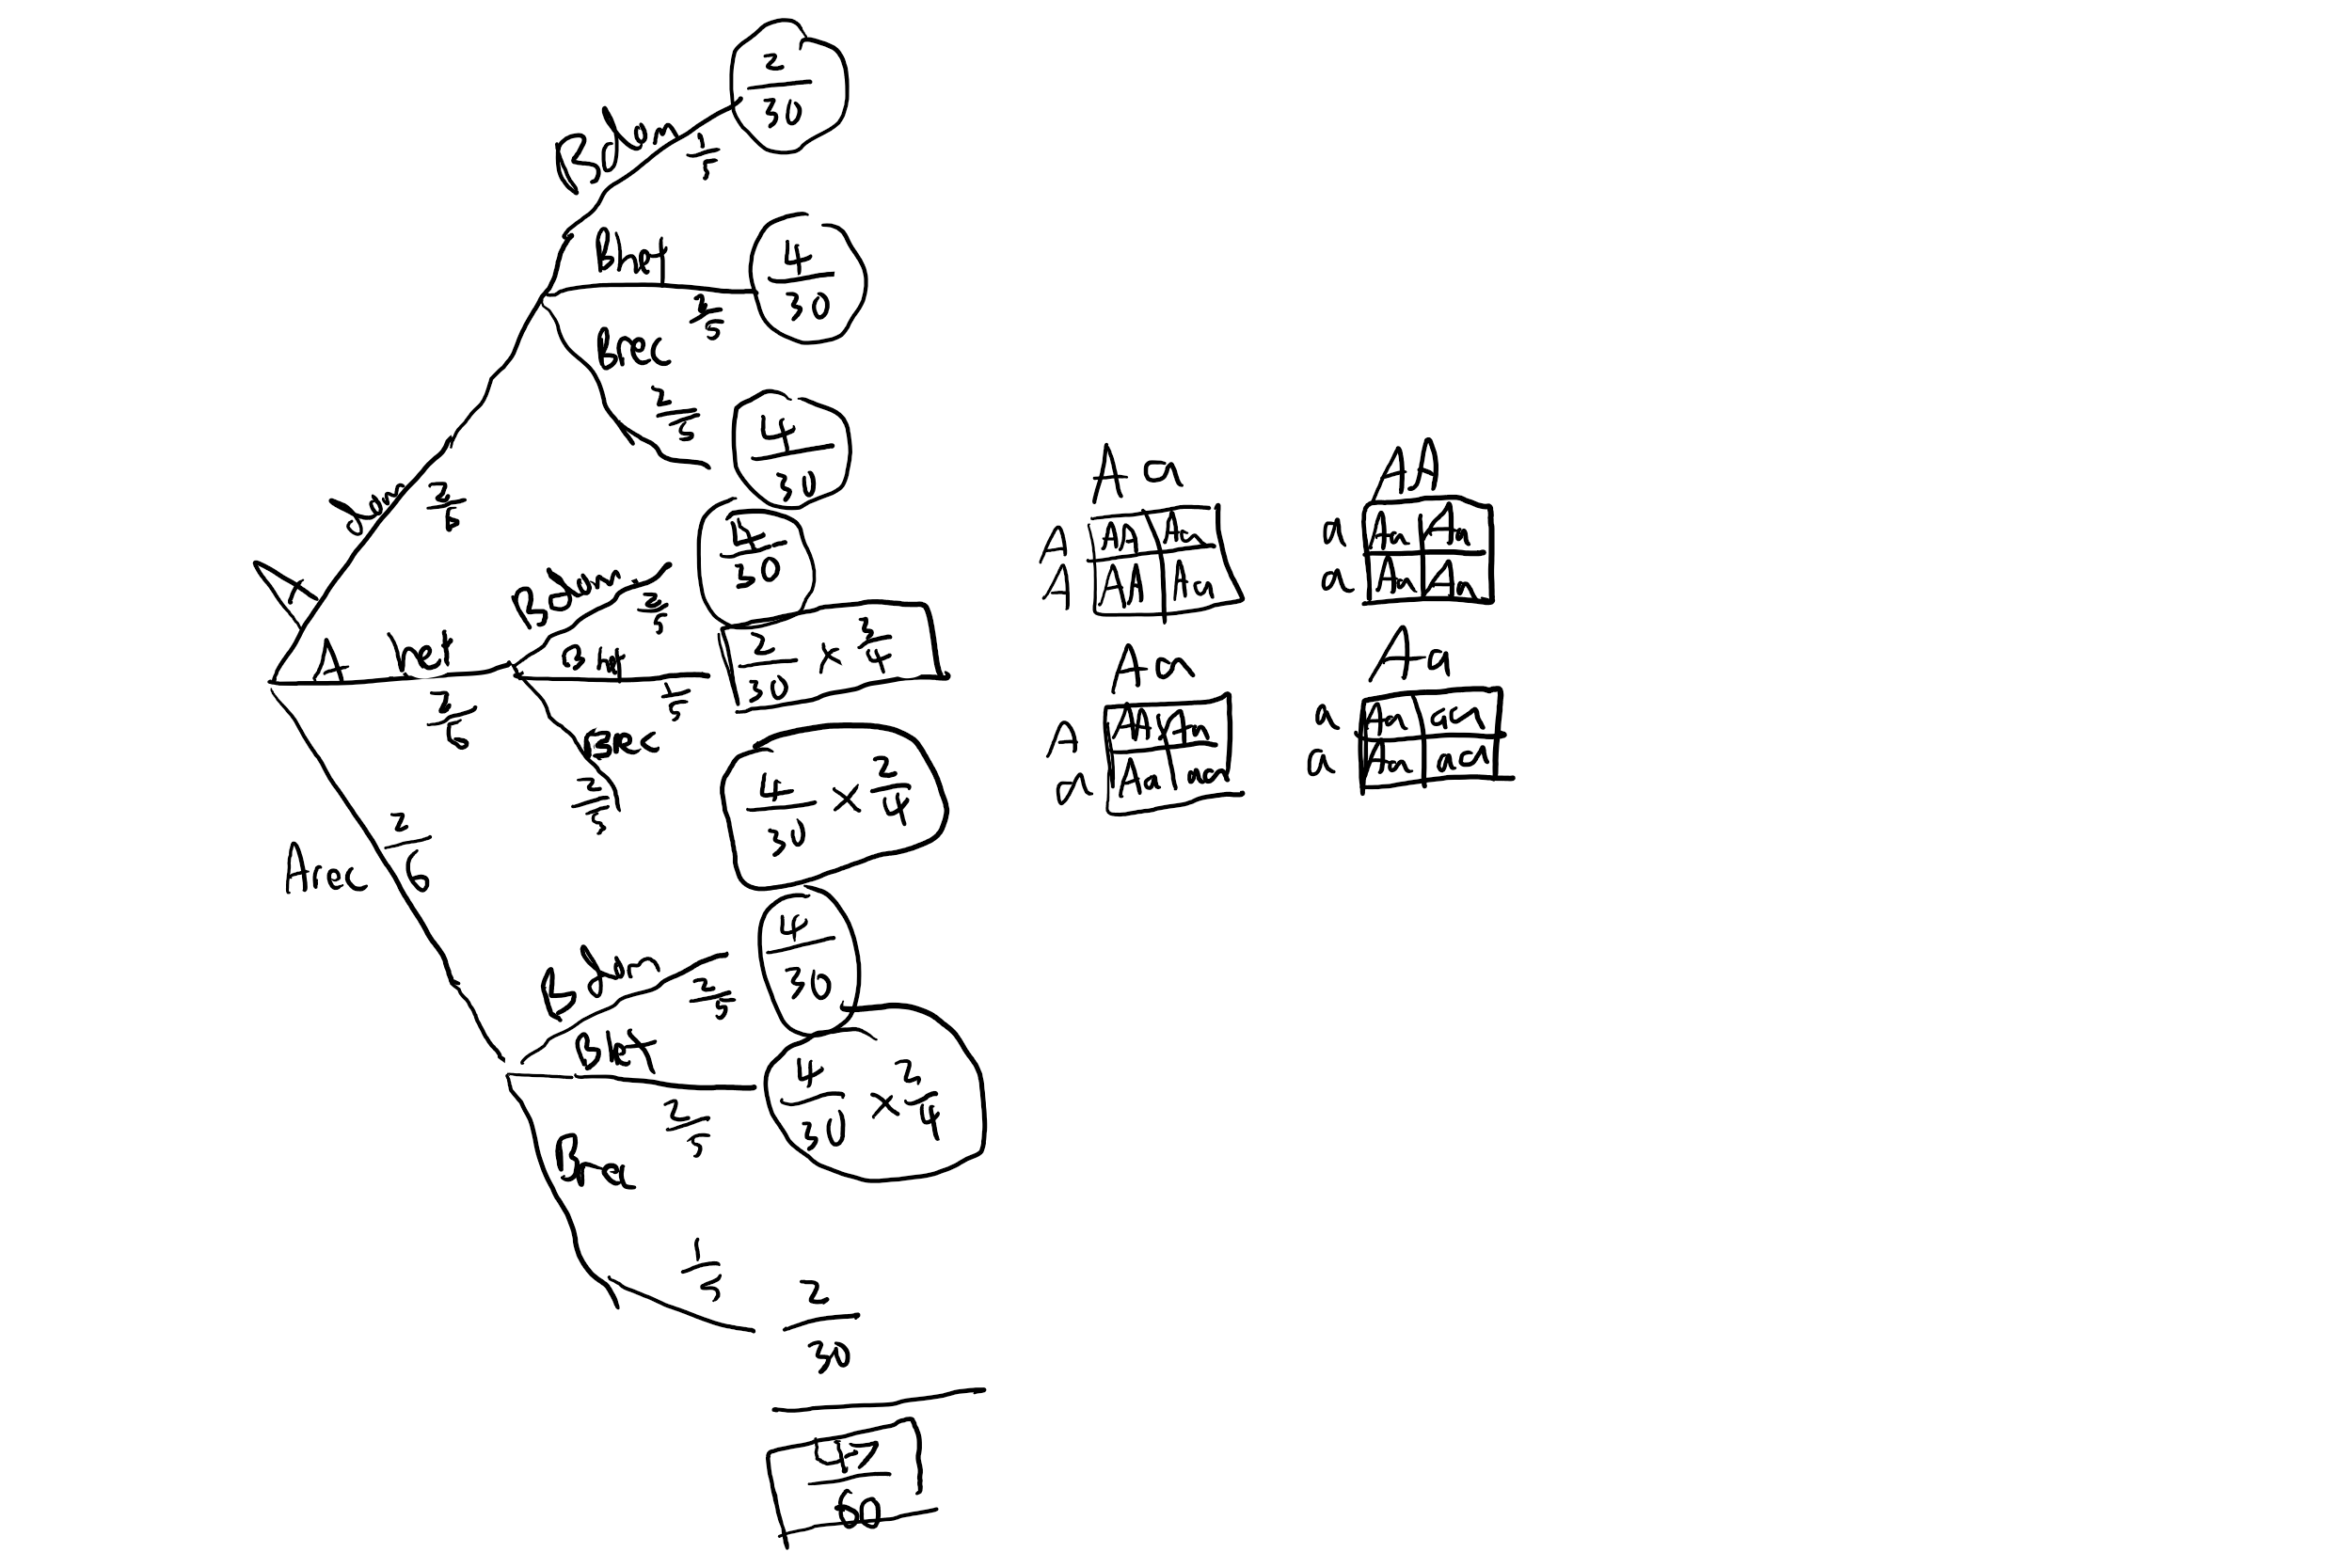 2/30
B dom 1/5
B het 2/5
4/30
B rec 2/5
4/30
A dom 2/6
4/30
B dom 2/5
A het 2/6
B ht 1/5
2/30 × 3/4
B rec 2/5
4/30 × 2/4
A rec 2/6
B dom 2/5
4/30
B het 2/5
4/30 × 2/4
B rec 1/5
2/30
47/60
Aa
A AA Aa
A AA Aa
AA
a Aa Aa
a Aa Aa
Aa
A AA Aa
a Aa aa
Aa
a Aa aa
a Aa aa